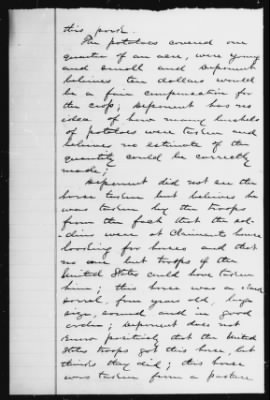 this pork.
The potatoes covered one
quarter of an acre, were young
and small and deponent
believes ten dollars would
be a fair compensation for
the crop; deponent has no
idea of how many bushels
of potatoes were taken and
believes no estimate of the
quantity could be correctly
made;
Deponent did not see the
horse taken but believes he
was taken by the troops
from the fact that the sol-
diers were at Claimants house
looking for horses and that
no one but troops of the
United States could have taken
him; this horse was a
sorrel, four years old, large
size, sound and in good
order; deponent does not
know positively that the United
States troops got this horse, but
thinks they did; this horse
was taken from a pasture